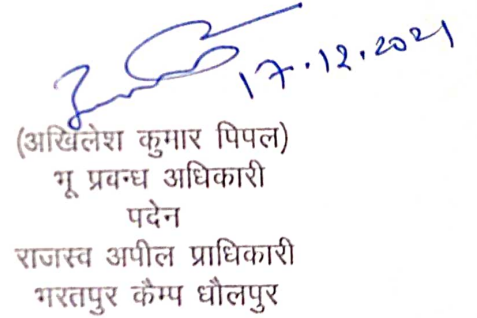 17.12.2021
(अखिलेश कुमार पिपल)
भू प्रवन्ध अधिकारी
पदेन
राजस्व अपील प्राधिकारी
भरतपुर कैम्प धौलपुर